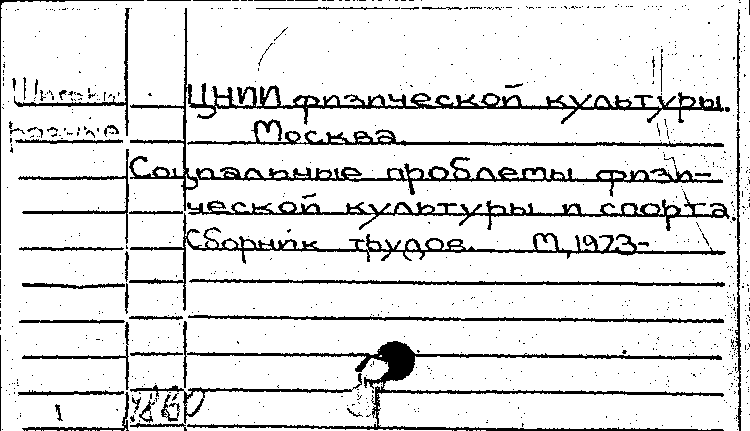 Шифры ЦНИИ физической культуры.
разные Москва.
Социальные проблемы физи-
ческой культуры и спорта.
Сборник трудов. М, 1973-
1